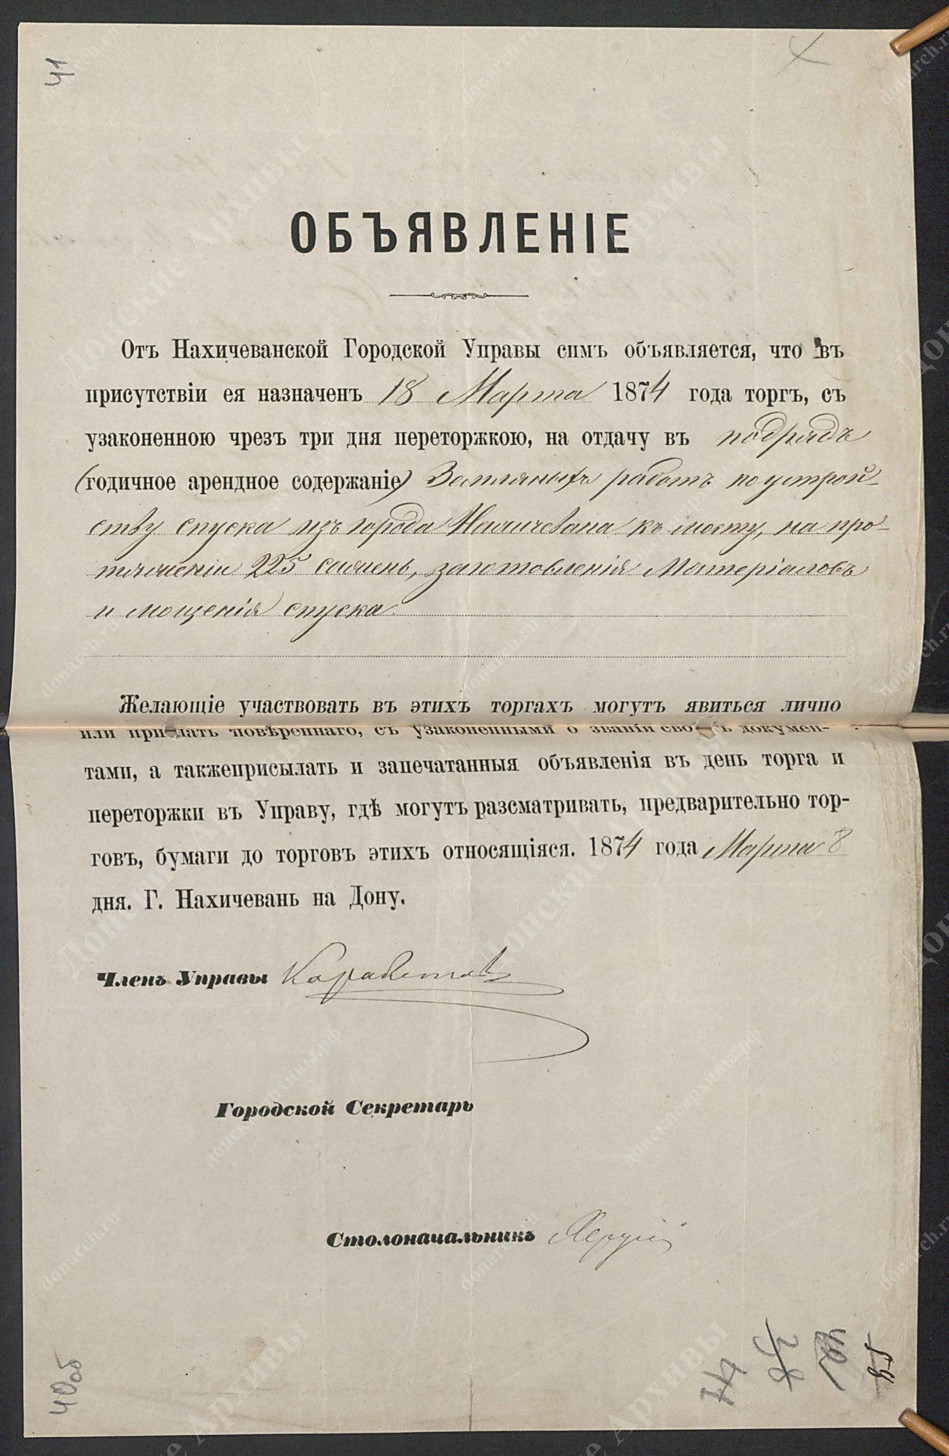 41
ОБЪЯВЛЕНІЕ
Отъ Нахичеванской Городской Управы симъ объявляется, что въ
присутствіи ея назначенъ 18 Марта 1874 года торгъ, съ
узаконенною чрезъ три дня переторжкою, на отдачу въ подрядъ
(годичное арендное содержаніе) Земляныхъ работъ по устрой-
ству спуска изъ города Нахичевана къ мосту, на про-
тяженіи 225 сажень, заготовленія Матеріаловъ
и мощенія спуска.
Желающіе участвовать въ этихъ торгахъ могутъ явиться лично
или прислать повѣреннаго, съ узаконенными о званіи своемъ докумен-
тами, а такжеприсылать и запечатанныя объявленія въ день торга и
переторжки въ Управу, гдѣ могутъ разсматривать, предварительно тор-
говъ, бумаги до торговъ этихъ относящіяся. 1874 года Марта 8
дня. Г. Нахичевань на Дону.
Членъ Управы
Городской Секретарь
Столоначальникъ
40об